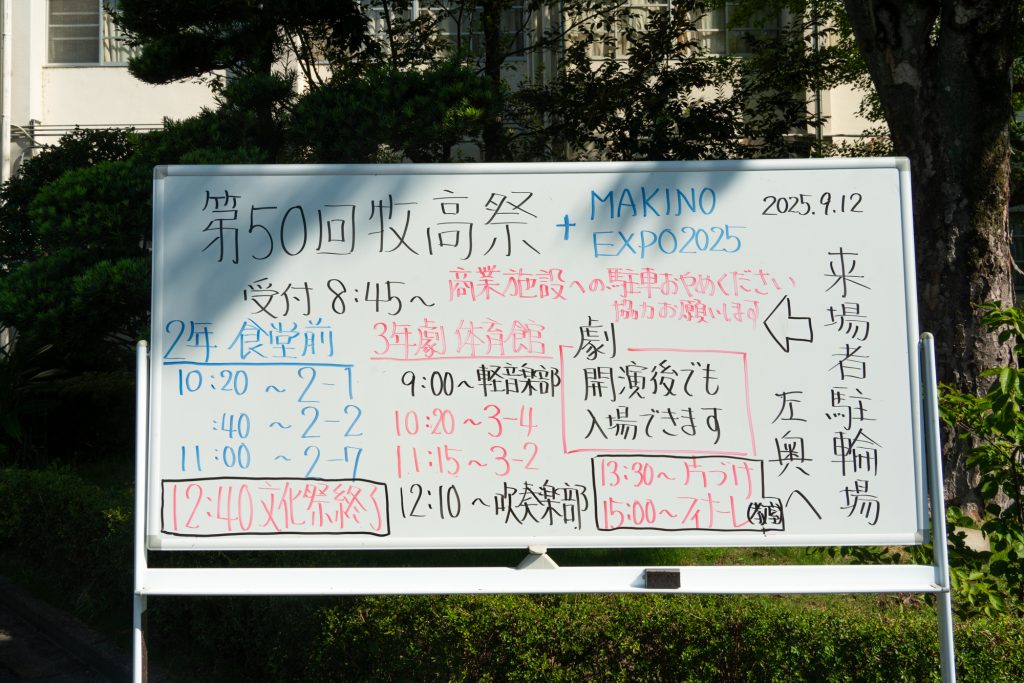 第50回牧高祭 + MAKINO EXPO2025
2025.9.12
受付 8:45~
商業施設への駐車おやめください
協力お願いします
来場者駐輪場
左奥へ
2年 食堂前
10:20 ~ 2-1
:40 ~ 2-2
11:00 ~ 2-7
12:40 文化祭終了
3年劇 体育館
9:00~軽音楽部
10:20~3-4
11:15~3-2
12:10~吹奏楽部
劇
開演後でも
入場できます
13:30~片づけ
15:00~フィナーレ